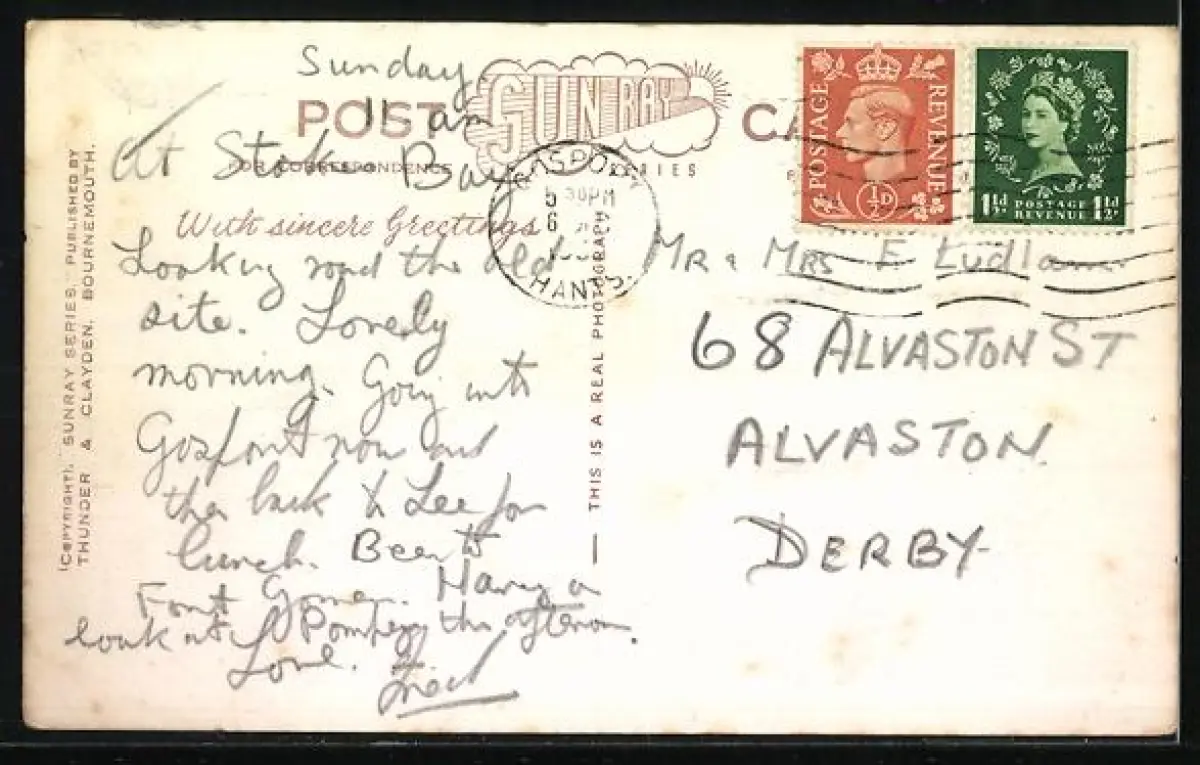 Sunday
11 am
POST CA
SUNRAY
SERIES
FOR CORRESPONDENCE
At Stokes Bay
With sincere Greetings
Looking round the old
site. Lovely
morning. Going into
Gosport now and
then back to Lee for
lunch. Been to
Fort Gomer. Having a
look at Pompey this afternoon.
Love.
Fred
(COPYRIGHT). SUNRAY SERIES. PUBLISHED BY
THUNDER & CLAYDEN. BOURNEMOUTH.
THIS IS A REAL PHOTOGRAPHY
30PM
6
HANTS
POSTAGE REVENUE
½D
1½d POSTAGE REVENUE 1½d
MR & MRS E Ludlam
68 ALVASTON ST
ALVASTON.
DERBY